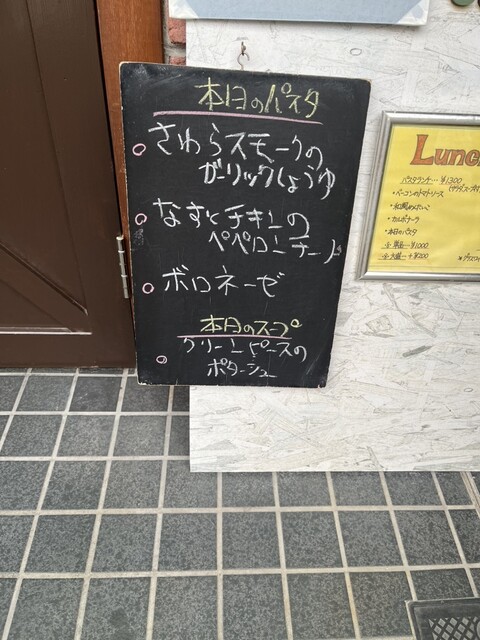 本日のパスタ
さわらスモークの
ガーリックしょうゆ
なすとチキンの
ペペロンチーノ
ボロネーゼ
本日のスープ
グリーンピースの
ポタージュ
Lunc
パスタランチ… ¥1300
・ベーコンのトマトソース
・和風めんたいこ
・カルボナーラ
・本日のパスタ
¥1000